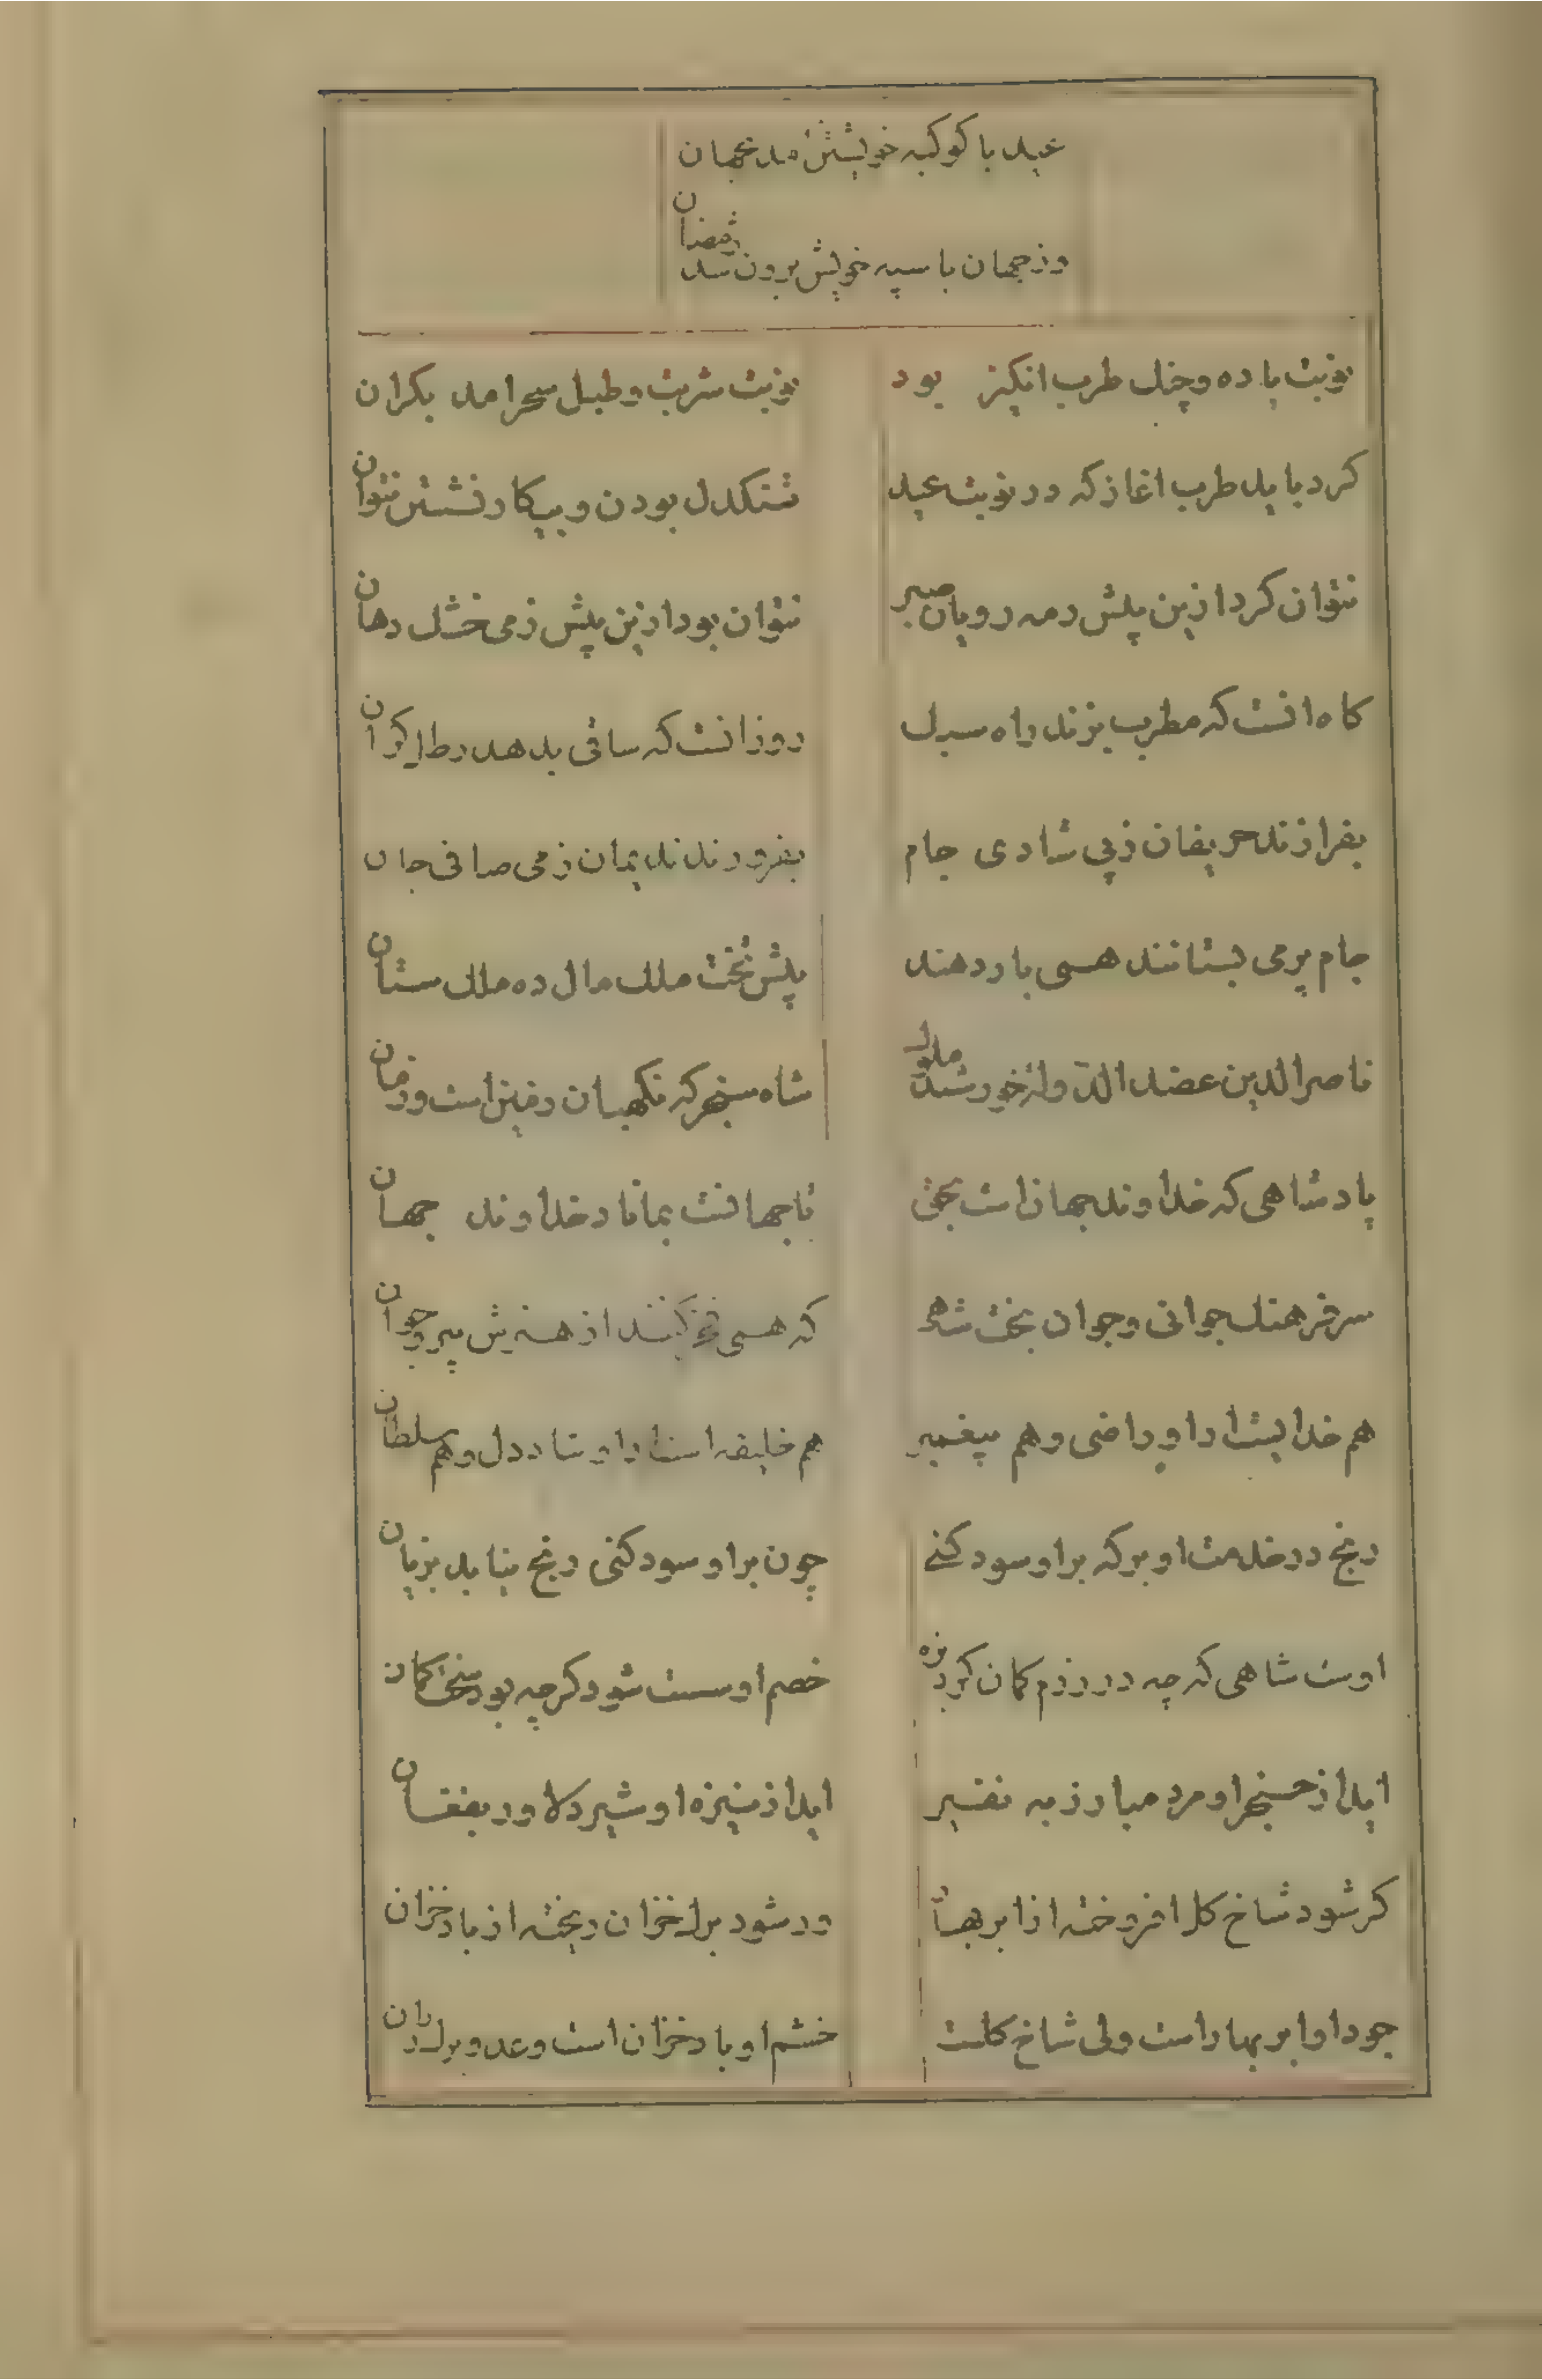 عید با کوکبه خویشتن آمد بجهان
وز جهان با سپه خویش برون شد رمضان
نوبت باده و چنک طرب انکیز بود
نوبت شربت و طبل سحر امد بکران
کرد باید طرب اغاز که در نوبت عید
تنکدل بودن و بیکار نشستن نتوان
نتوان کرد ازین پیش ز مه رویان صبر
نتوان بود ازین پیش ز می خشک دهان
کاه انست که مطرب بزند راه سبک
روز انست که ساقی بدهد رطل کران
بفرازند حریفان ز پی شادی جام
بفروزند ندیمان ز می صافی جان
جام پر می بستانند همی بار دهند
پیش تخت ملک مال ده ملک ستان
ناصر الدین عضد الدوله خورشید ملوک
شاه سنجر که نکهبان زمین است و زمان
پادشاهی که خداوند جهانست بحق
تا جهانست بماناد خداوند جهان
سر فرهنک جوانی و جوان بخت شهی
که همی فخر کنند از هنرش پیر و جوان
هم خدایست ازو راضی و هم پیغمبر
هم خلیفه است ازو شاد دل و هم سلطان
رنج در خدمت او بر که بر او سود کنی
چون بر او سود کنی رنج نیاید بزیان
اوست شاهی که چه در رزم کمان کرد بزه
خصم او سست شود کرچه بود سخت کمان
اید از خنجر او مرد مبارز به نفیر
اید از نیزه او شیر دلاور بفغان
کر شود شاخ کل افروخته از ابر بهار
ور شود برک خزان ریخته از باد خزان
جود او ابر بهار است ولی شاخ کلست
خشم او باد خزان است و عدو برک رزان